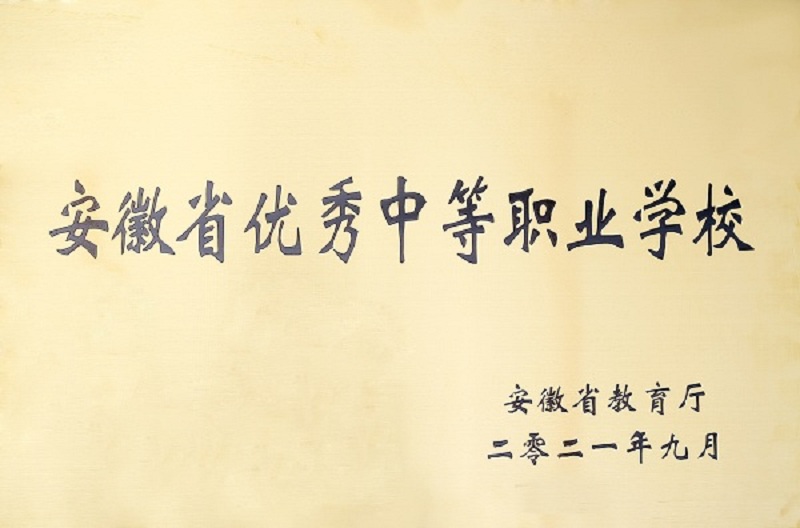 安徽省优秀中等职业学校
安徽省教育厅
二零二一年九月